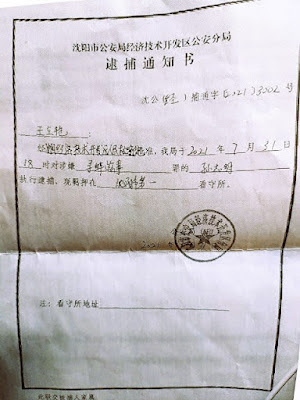 沈阳市公安局经济技术开发区公安分局
逮捕通知书
沈公(经)捕通字[2021]3002号
王玉艳:
经沈阳经济技术开发区人民检察院批准,我局于2021年7月31日
18时对涉嫌寻衅滋事罪的
执行逮捕,现羁押在第一看守所。
2021
注:看守所地址
此联交被捕人家属